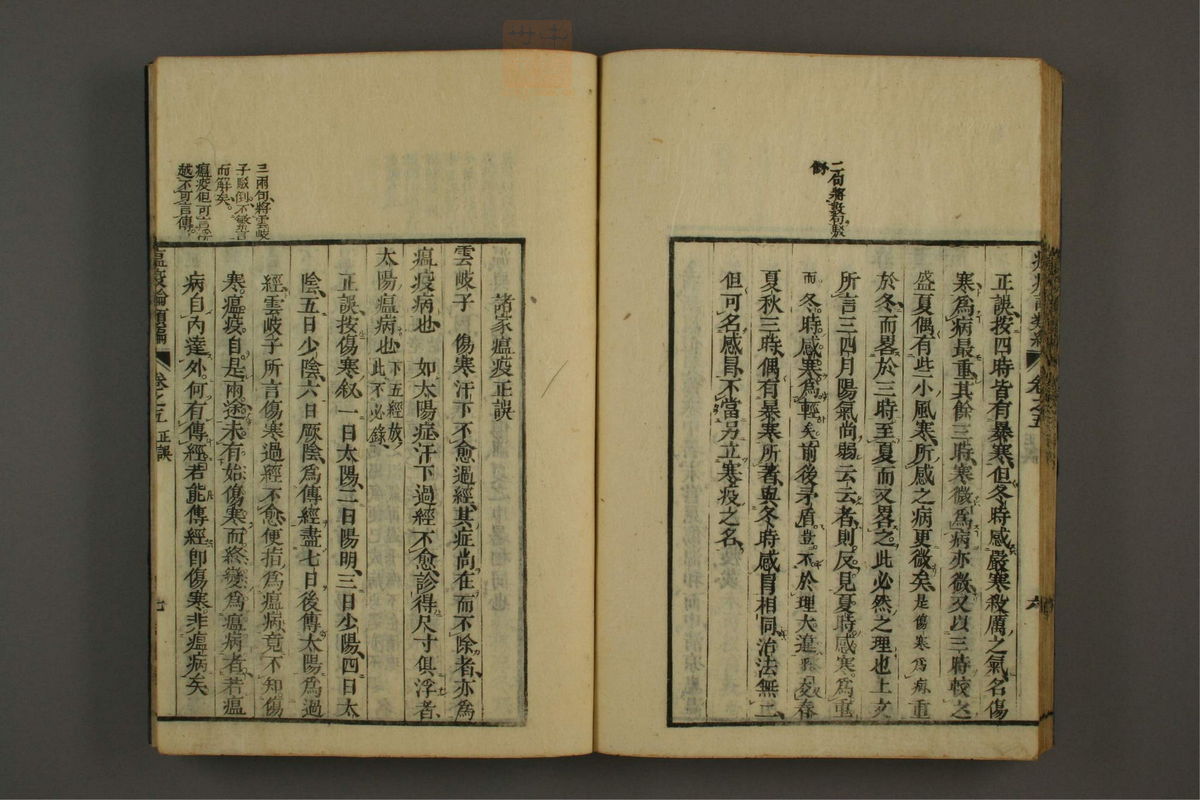 二句將數句駁
倒
正誤按四時皆有暴寒但冬時感嚴寒殺厲之氣名傷
寒為病最重其餘三時寒微為病亦微又以三時較之
盛夏偶有些小風寒所感之病更微矣是傷寒為病重
於冬而畧於三時至夏而又畧之此必然之理也上文
所言三四月陽氣尚弱云云者則反見夏時感寒為重
而冬時感寒為輕矣前後矛盾豈不於理大違又春
夏秋三時偶有暴寒所著與冬時感冒相同治法無二
但可名感冒不當另立寒疫之名
卷之五
三兩句將雲岐
子駁倒不繁言
而解矣
瘟疫但可言
越不可言傳
諸家瘟疫正誤
雲岐子 傷寒汗下不愈過經其症尚在而不除者亦為
瘟疫病也 如太陽症汗下過經不愈診得尺寸俱浮者
太陽瘟病也下五經放此不必錄
正誤按傷寒叙一日太陽二日陽明三日少陽四日太
陰五日少陰六日厥陰為傳經盡七日後傳太陽為過
經雲岐子所言傷寒過經不愈便指為瘟病竟不知傷
寒瘟疫自是兩途未有始傷寒而終變為瘟病者若瘟
病自內達外何有傳經若能傳經即傷寒非瘟病矣
瘟疫論類編 卷之五 正誤 七